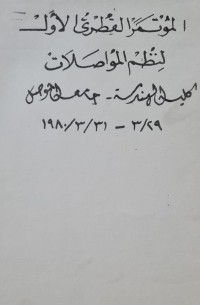 المؤتمر القطري الأول
لنظم المواصلات
كلية الهندسة - جامعة الموصل
٣/٢٩ - ١٩٨٠/٣/٣١